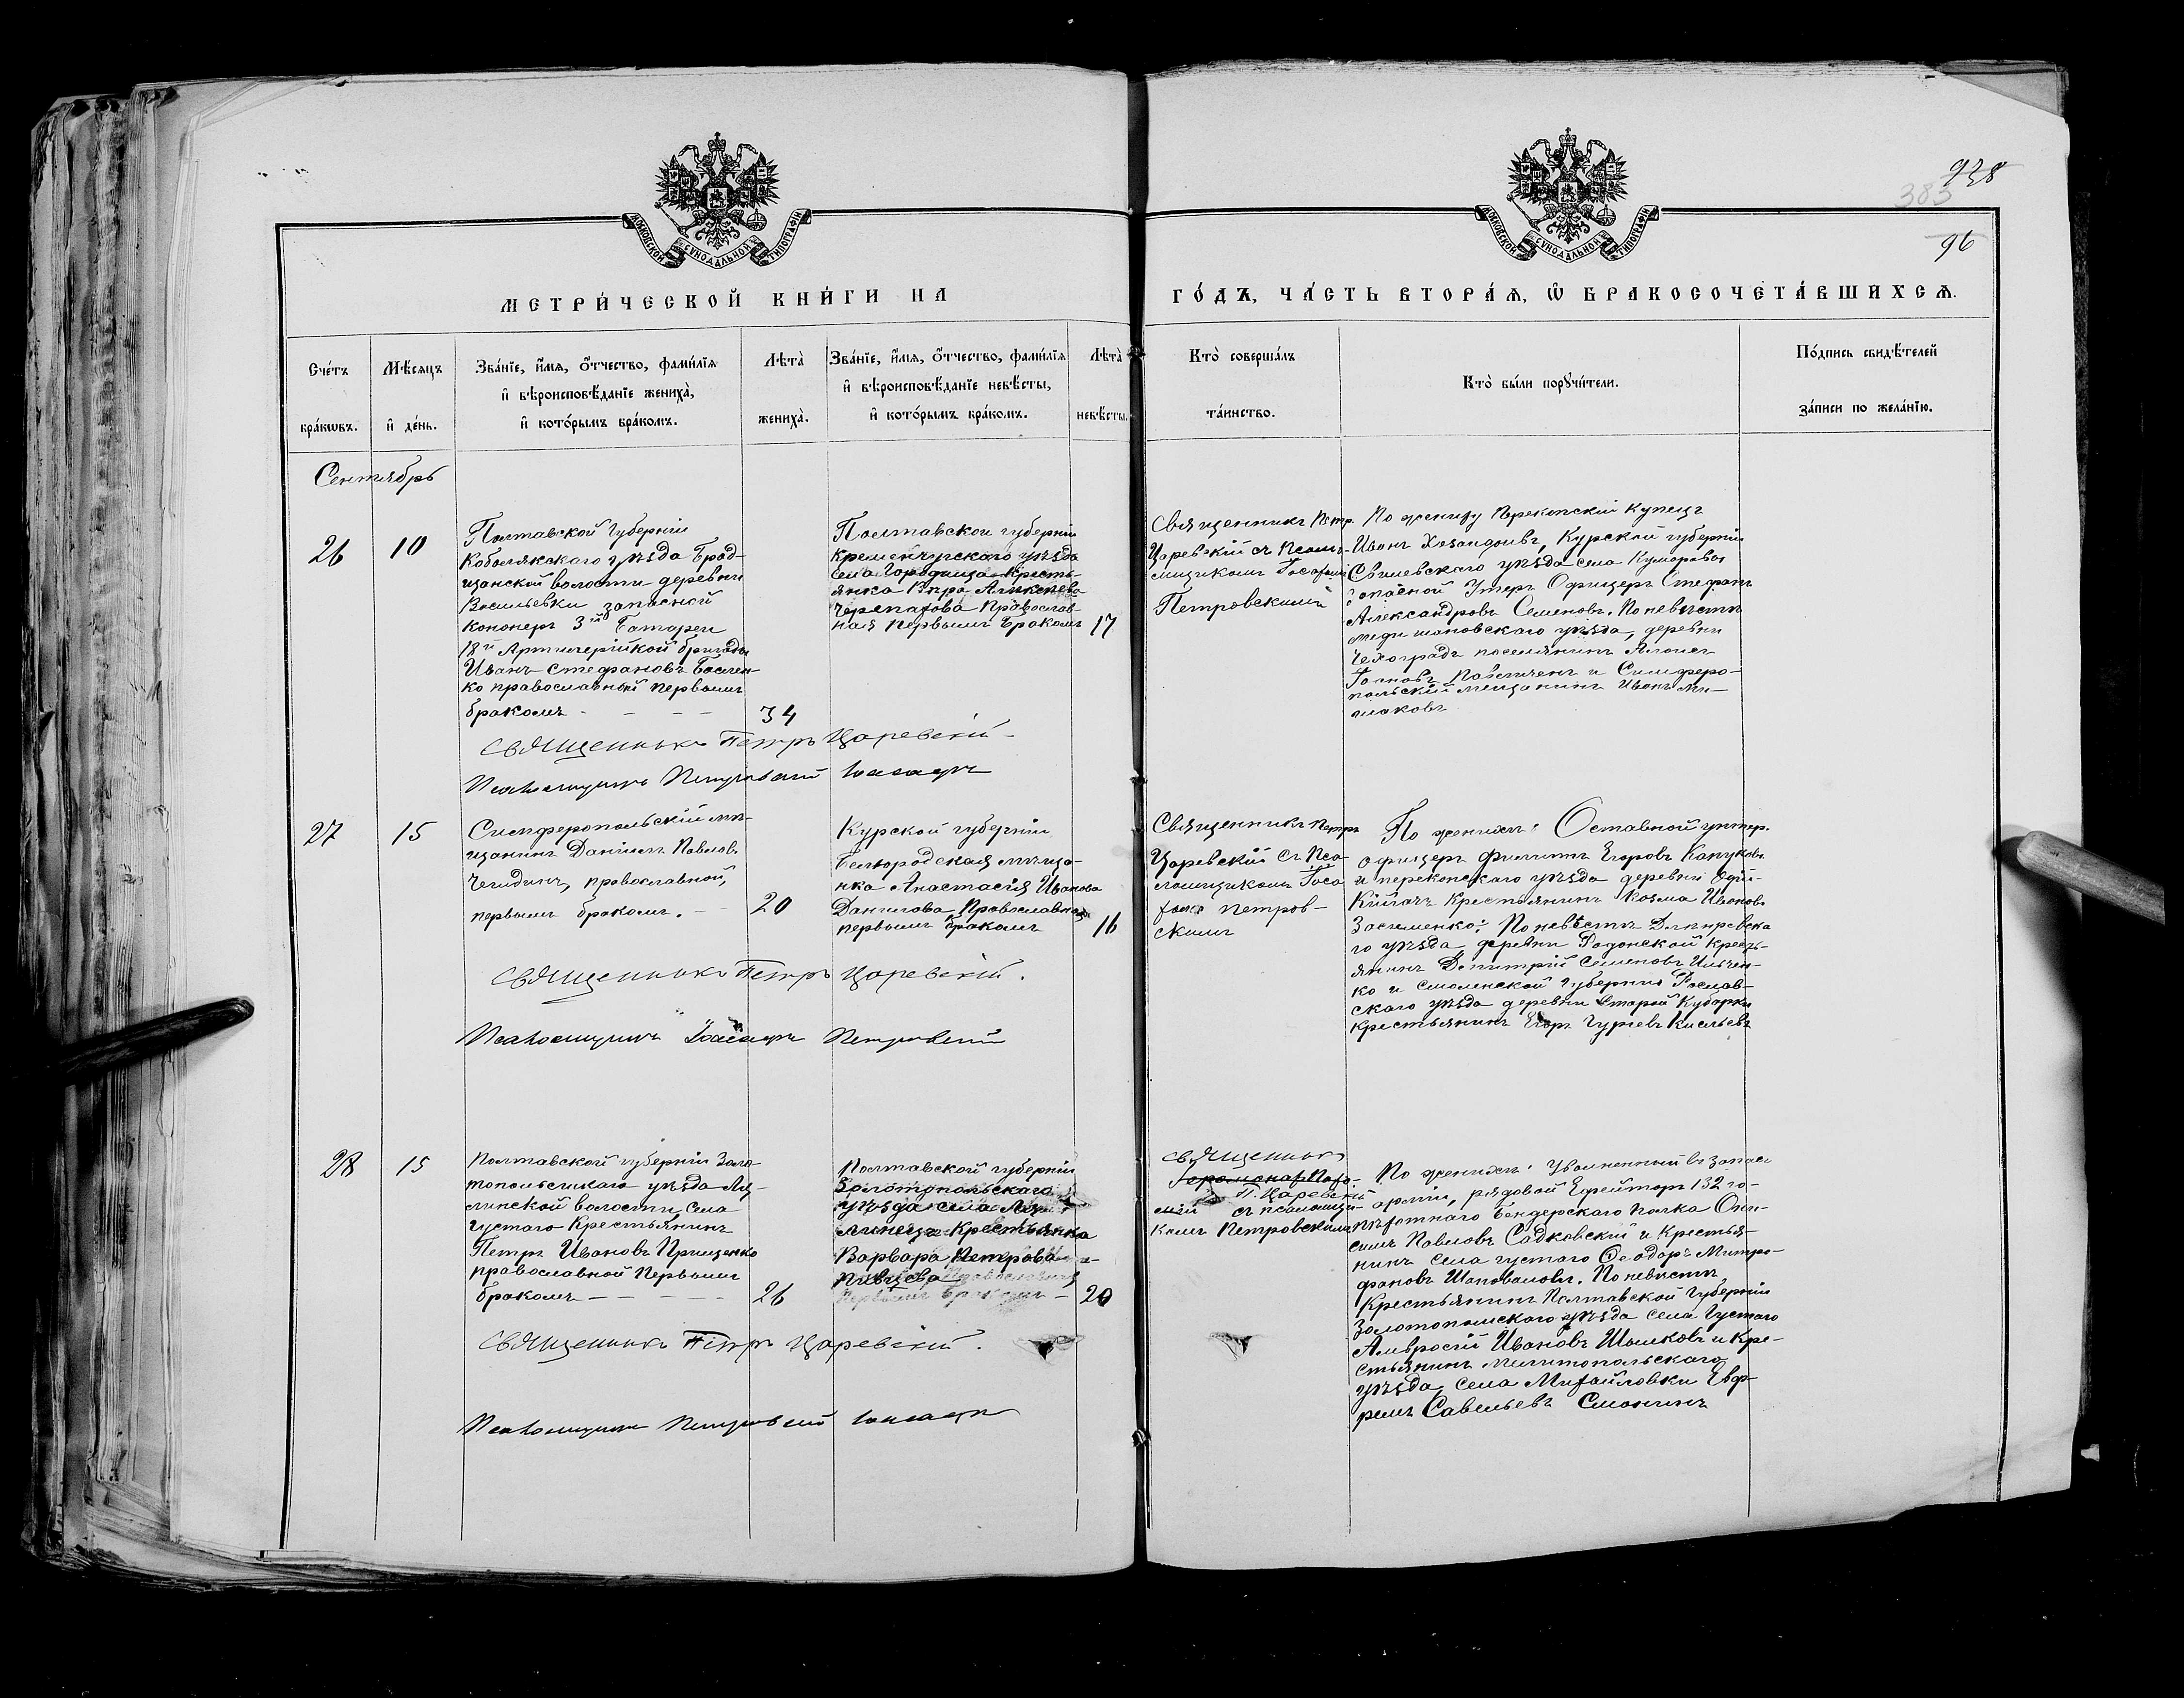 938
383
96
МОСКОВСКОЙ СѴНОДАЛЬНОЙ ТИПОГРАФІИ
МОСКОВСКОЙ СѴНОДАЛЬНОЙ ТИПОГРАФІИ
МЕТРИ́ЧЕСКОЙ КНИ́ГИ НА
ГО́ДЪ, ЧА́СТЬ ВТОРА́Ѧ, Ѡ҆ БРАКОСОЧЕТА́ВШИХСѦ.
Сче́тъ
бра́кѡвъ.
Мѣ́сяцъ
и҆ де́нь.
Зва́нїе, и҆́мѧ, ѻ҆́тчество, фами́лїѧ
и҆ вѣроисповѣ́данїе жениха̀,
и҆ кото́рымъ бра́комъ.
Лѣ́та̀
жениха̀.
Зва́нїе, и҆́мѧ, ѻ҆́тчество, фами́лїѧ
и҆ вѣроисповѣ́данїе невѣ́сты,
и҆ кото́рымъ бра́комъ.
Лѣ́та̀
невѣ́сты.
Кто̀ соверша́лъ
та́инство.
Кто̀ бы́ли порꙋчи́тели.
По́дпись свидѣ́телей
за́писи по жела́нїю.
Сентябрь
26
10
Полтавской Губерніи
Кобелякскаго уѣзда Брад-
щанской волости деревни
Васильевки запасной
Кононеръ 3й Батареи
18й Артилерійской бригады
Иванъ Стефановъ
ко православный первымъ
бракомъ
34
Полтавской губерніи
Кременчугскаго уѣзда
села Городища Кресть-
янка Вѣра Алексѣева
Черепахова Православ-
ная первымъ Бракомъ
17
Священникъ Петръ
Царевскій съ Псалом-
щикомъ Іосафомъ
Петровскимъ
По жениху Перекопскій Купецъ
Иванъ Курской губерніи
уѣзда села
запасной Унтеръ Офицеръ Стефанъ
Александровъ Семеновъ. По невѣстѣ
уѣзда, деревни
Чехоградъ поселянинъ
и Симферо-
польскій мещанинъ Иванъ Ми-
лаковъ
Священникъ Петръ Царевскій
Псаломщикъ Петровскій Іоасафъ
27
15
Симферопольскій мѣ-
щанинъ Даніилъ Павловъ
православной,
первымъ бракомъ.
20
Курской губерніи
Белгородская мѣща-
нка Анастасія Иванова
Данилова Православная
первымъ бракомъ
16
Священникъ Петръ
Царевскій съ Пса-
ломщикомъ Іоса
фомъ Петров-
скимъ
По женихѣ: Оставной унтер.
офицеръ Филиппъ Егоровъ
и перекопскаго уѣзда деревни
Крестьянинъ Козма Ивановъ
По невѣстѣ Днѣпровска
го уѣзда деревни Кресть-
янинъ Димитрій Семеновъ Ильчен-
ко и Смоленской губерніи Рослав-
скаго уѣзда деревни Старой
крестьянинъ Егоръ
Священникъ Петръ Царевскій.
Псаломщикъ Іоасафъ Петровскій
28
15
Полтавской губерніи Золо-
уѣзда
волости, Села
Густаго Крестьянинъ
Петръ Ивановъ Прищенко
православной Первымъ
бракомъ
26
Полтавской губерніи
Золотопольскаго
уѣзда села
Крестьянка
Варвара Петрова
Пивцева Православная
первымъ бракомъ
20
Священникъ
П. Царевскій
съ псаломщи-
комъ Петровскимъ
По женихѣ: Уволненный въ запасъ
арміи, рядовой Ефрейторъ 132 го-
пѣхотнаго Бендерскаго полка Они-
симъ Павловъ Садковскій и Крестья-
нинъ села густаго Ѳеодоръ Митро-
фановъ Шаповаловъ. По невѣстѣ
Крестьянинъ Полтавской Губерніи
уѣзда села Густаго
Амвросій Ивановъ и Кре-
стьянинъ Мелитопольскаго
уѣзда, села Михайловки Евф-
ремъ Савельевъ
Священникъ Петръ Царевскій.
Псаломщикъ Петровскій Іоасафъ